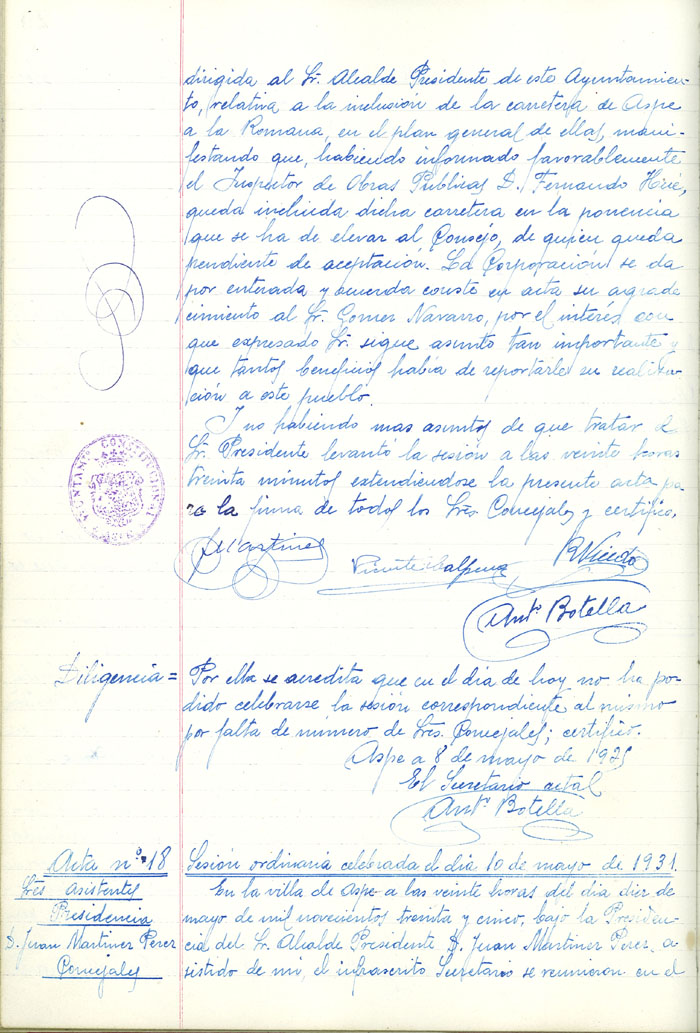 dirigida al Sr. Alcalde Presidente de este Ayuntamien-
to, relativa a la inclusión de la carretera de Aspe
a la Romana, en el plan general de ellas, mani-
festando que, habiendo informado favorablemente
el Inspector de Obras Publicas D. Fernando
queda incluida dicha carretera en la ponencia
que se ha de elevar al Consejo, de quien queda
pendiente de aceptación. La Corporación se da
por enterada y acuerda conste en acta su agrade
cimiento al Sr. Gomez Navarro, por el interés con
que expresado Sr. sigue asunto tan importante y
que tantos beneficios habia de reportarle su realiza-
ción a este pueblo.
Y no habiendo mas asuntos de que tratar el
Sr. Presidente levantó la sesión a las veinte horas
treinta minutos extendiendose la presente acta pa
ra la firma de todos los Sres. Concejales y certifico.
AYUNTAMTº CONSTITUCIONAL
J Martinez
Vicente Calpena
Ant.º Botella
Diligencia =
Por ella se acredita que en el dia de hoy no ha po-
dido celebrarse la sesión correspondiente al mismo
por falta de número de Sres. Concejales; certifico.
Aspe a 8 de mayo de 1935
El Secretario actal
Ant.º Botella
Acta nº 18
Sres asistentes
Presidencia
D. Juan Martinez Perez
Concejales
Sesión ordinaria celebrada el dia 10 de mayo de 1931.
En la villa de Aspe a las veinte horas del dia diez de
mayo de mil novecientos treinta y cinco, bajo la Presiden-
cia del Sr. Alcalde Presidente D. Juan Martinez Perez, a
sistido de mi, el infrascrito Secretario se reunieron en el